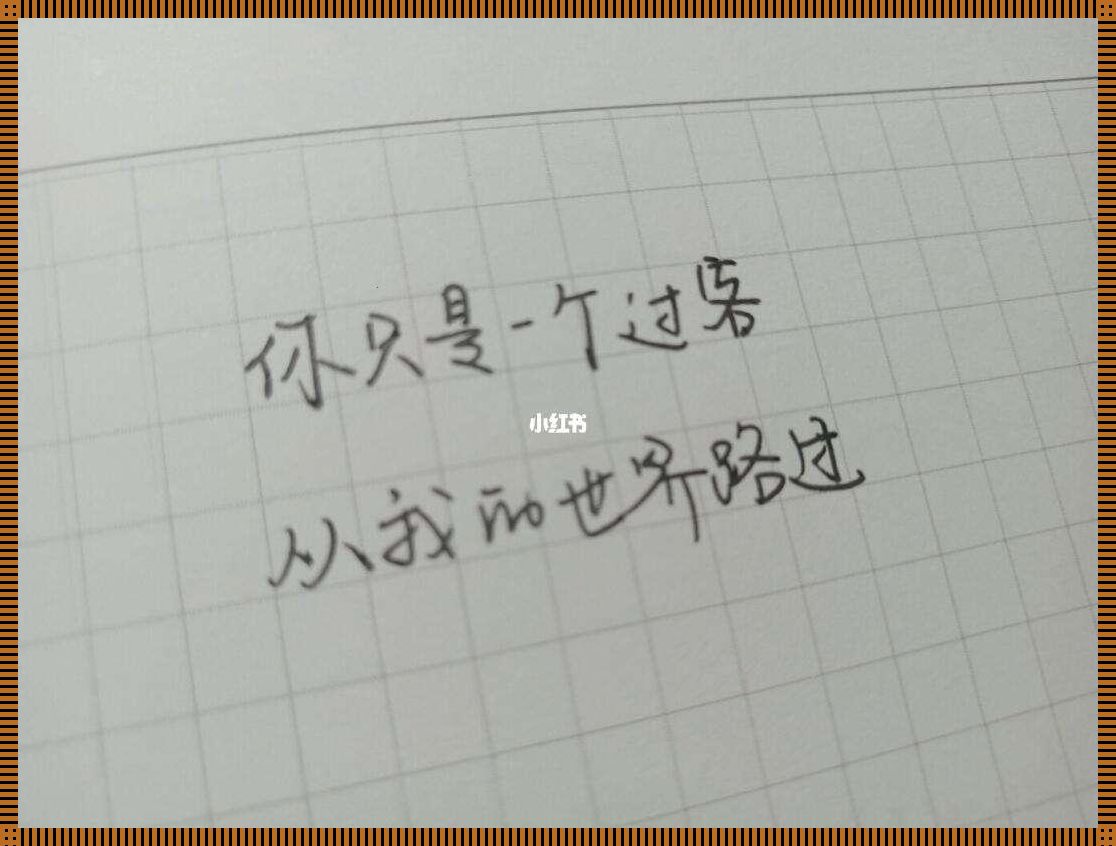 你只是一个过客
小红书
从我的世界路过